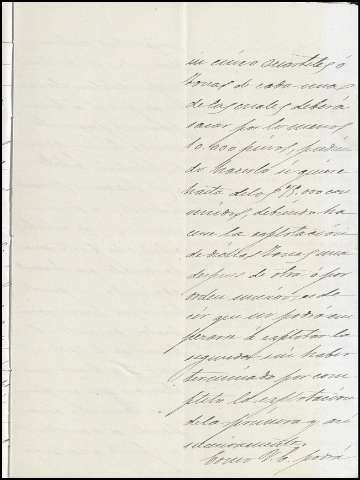 en cinco cuarteles ó
zonas de cada una
de las cuales deberá
sacar por lo menos
10.000 pinos, pudien
do hacerlo si quiere
hasta de los
unidos, debiendo ha
cerse la explotación
de dichas zonas una
despues de otra ó por
orden numérico, es de
cir que no podrá em
pezara á explotar la
segunda sin haber
terminado por com
pleto la explotación
de la primera y asi
sucesivamente.
Como V. E. podrá